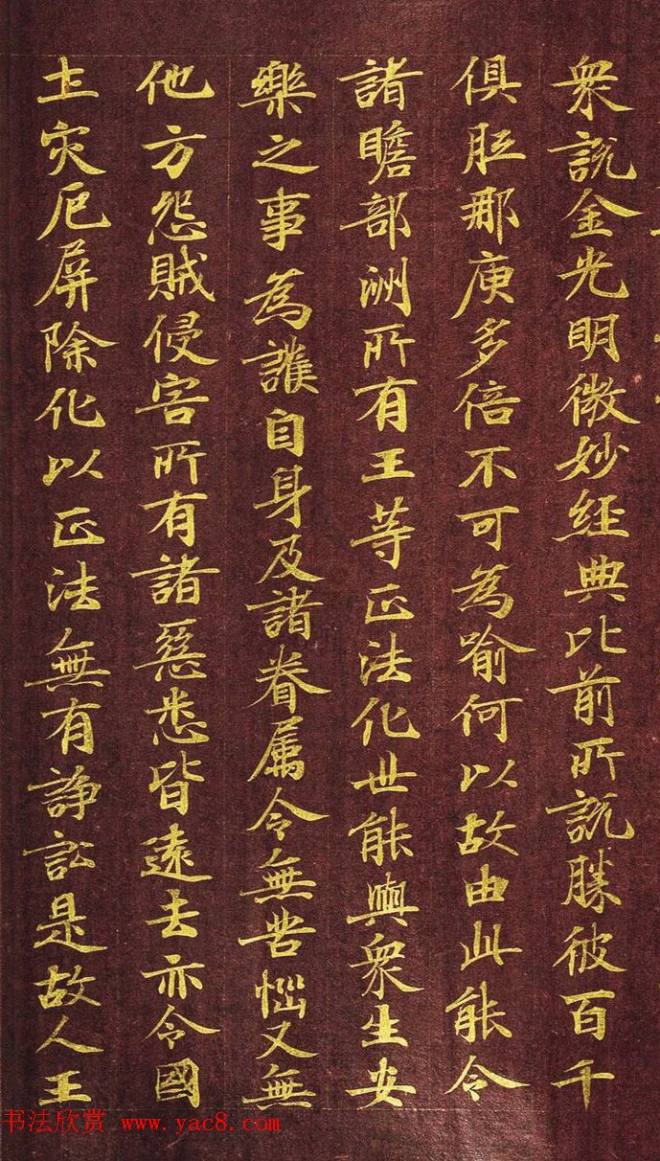 衆説金光明微妙経典比前所説勝彼百千
俱胝那庾多倍不可為喻何以故由此能令
諸贍部洲所有王等正法化世能與衆生安
樂之事為護自身及諸眷属令無苦惱又無
他方怨賊侵害所有諸惡悉皆遠去亦令國
土灾厄屏除化以正法無有諍訟是故人王
书法欣赏 www.yac8.com